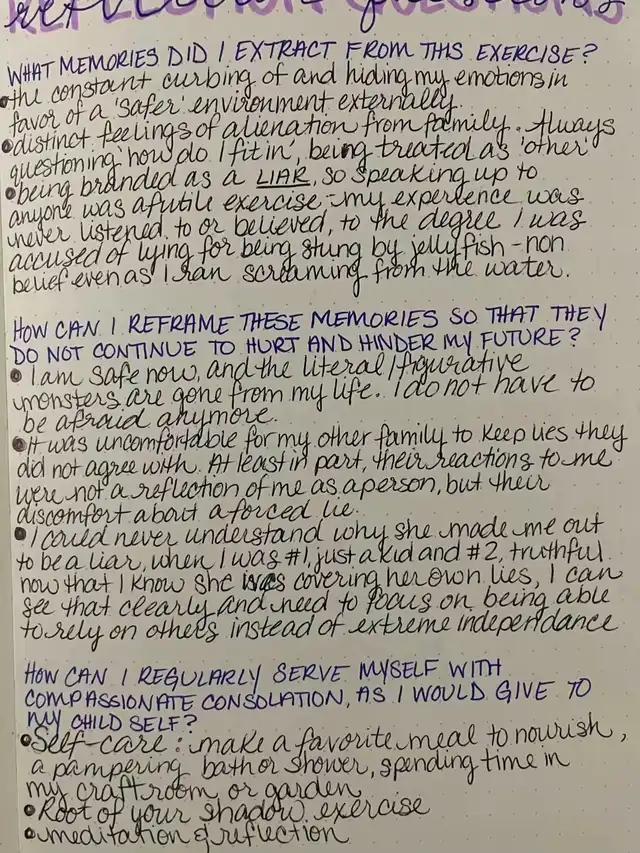 reflection questions
WHAT MEMORIES DID I EXTRACT FROM THIS EXERCISE?
• the constant curbing of and hiding my emotions in
favor of a 'safer' environment externally.
• distinct feelings of alienation from family. Always
questioning 'how do I fit in', being treated as 'other'
• being branded as a LIAR, so speaking up to
anyone was a futile exercise - my experience was
never listened to or believed, to the degree I was
accused of lying for being stung by jellyfish - non
belief even as I ran screaming from the water.
HOW CAN I REFRAME THESE MEMORIES SO THAT THEY
DO NOT CONTINUE TO HURT AND HINDER MY FUTURE?
• I am safe now, and the literal/figurative
monsters are gone from my life. I do not have to
be afraid anymore.
• It was uncomfortable for my other family to keep lies they
did not agree with. At least in part, their reactions to me
were not a reflection of me as a person, but their
discomfort about a forced lie.
• I could never understand why she made me out
to be a liar, when I was #1, just a kid and #2, truthful.
now that I know she was covering her own lies, I can
see that clearly and need to focus on being able
to rely on others instead of extreme independance
HOW CAN I REGULARLY SERVE MYSELF WITH
COMPASSIONATE CONSOLATION, AS I WOULD GIVE TO
MY CHILD SELF?
• Self-care: make a favorite meal to nourish,
a pampering bath or shower, spending time in
my craftroom or garden
• Root of your shadow exercise
• meditation & reflection